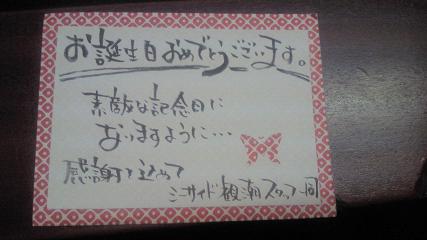 お誕生日おめでとうございます。
素敵な記念日に
なりますように…
感謝を込めて
シーサイド観潮スタッフ一同